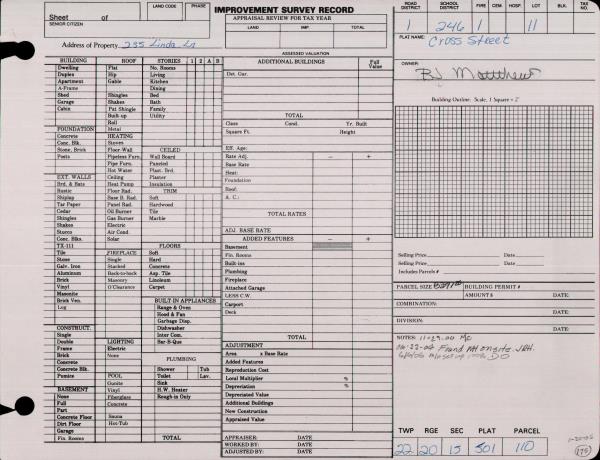 Sheet of
SENIOR CITIZEN
LAND CODE
PHASE
Address of Property 235 Linda Ln
IMPROVEMENT SURVEY RECORD
APPRAISAL REVIEW FOR TAX YEAR
LAND IMP. TOTAL
ASSESSED VALUATION
ROAD DISTRICT SCHOOL DISTRICT FIRE CEM. HOSP. LOT BLK. TAX NO.
1 246 1 11
PLAT NAME:
Cross Street
OWNER:
Building Outline: Scale, 1 Square = 2'
BUILDING ROOF STORIES 1 2 A B
Dwelling Flat No. Rooms
Duplex Hip Living
Apartment Gable Kitchen
A-Frame Dining
Shed Shingles Bed
Garage Shakes Bath
Cabin Pat Shingle Family
Built-up Utility
Roll
FOUNDATION Metal
Concrete HEATING
Conc. Blk. Stoves CEILED
Stone, Brick Floor-Wall Wall Board
Posts Pipeless Furn. Paneled
Pipe Furn. Plast. Brd.
Hot Water Plaster
EXT. WALLS Ceiling Insulation
Brd. & Bats Heat Pump TRIM
Rustic Floor Rad. Soft
Shiplap Base B. Rad. Hardwood
Tar Paper Panel Rad. Tile
Cedar Oil Burner Marble
Shingles Gas Burner
Shakes Electric
Stucco Air Cond.
Conc. Blks. Solar
TX-111 FLOORS
Tile FIREPLACE Soft
Stone Single Hard
Galv. Iron Stacked Concrete
Aluminum Back-to-back Asp. Tile
Brick Masonry Linoleum
Vinyl O'Clearance Carpet
Masonite
Brick Ven. BUILT-IN APPLIANCES
Log Range & Oven
Hood & Fan
Garbage Disp.
CONSTRUCT. Dishwasher
Single Inter Com.
Double LIGHTING Bar-B-Que
Frame Electric
Brick None
Concrete PLUMBING
Concrete Blk. Shower Tub
Pumice POOL Toilet Lav.
Gunite Sink
BASEMENT Vinyl H.W. Heater
None Fiberglass Rough-in Only
Full Concrete
Part
Concrete Floor Sauna
Dirt Floor Hot-Tub
Garage
Fin. Rooms TOTAL
ADDITIONAL BUILDINGS Full Value
Det. Gar.
TOTAL
Class Cond. Yr. Built
Square Ft. Height
Eff. Age:
Rate Adj. − +
Base Rate
Heat:
Foundation
Roof:
A. C.:
TOTAL RATES
ADJ. BASE RATE
ADDED FEATURES − +
Basement
Fin. Rooms
Built-ins
Plumbing
Fireplace
Attached Garage
LESS C.W.
Carport
Deck
TOTAL
ADJUSTMENT
Area x Base Rate
Added Features
Reproduction Cost
Local Multiplier %
Depreciation %
Depreciated Value
Additional Buildings
New Construction
Appraised Value
APPRAISER: DATE
WORKED BY: DATE
ADJUSTED BY: DATE
Selling Price Date
Selling Price Date
Includes Parcels #
PARCEL SIZE BUILDING PERMIT #
AMOUNT $ DATE:
COMBINATION:
DATE:
DIVISION:
DATE:
NOTES: 11-29-00 MC
TWP RGE SEC PLAT PARCEL
22 20 15 501 110